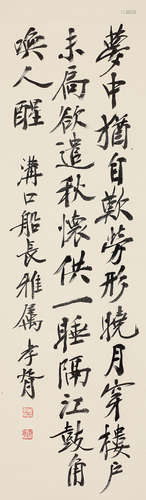 夢中猶自歎勞形曉月穿樓戶
未扃欲遣秋懷供一睡隔江鼓角
喚人醒
溝口船長雅屬 孝胥